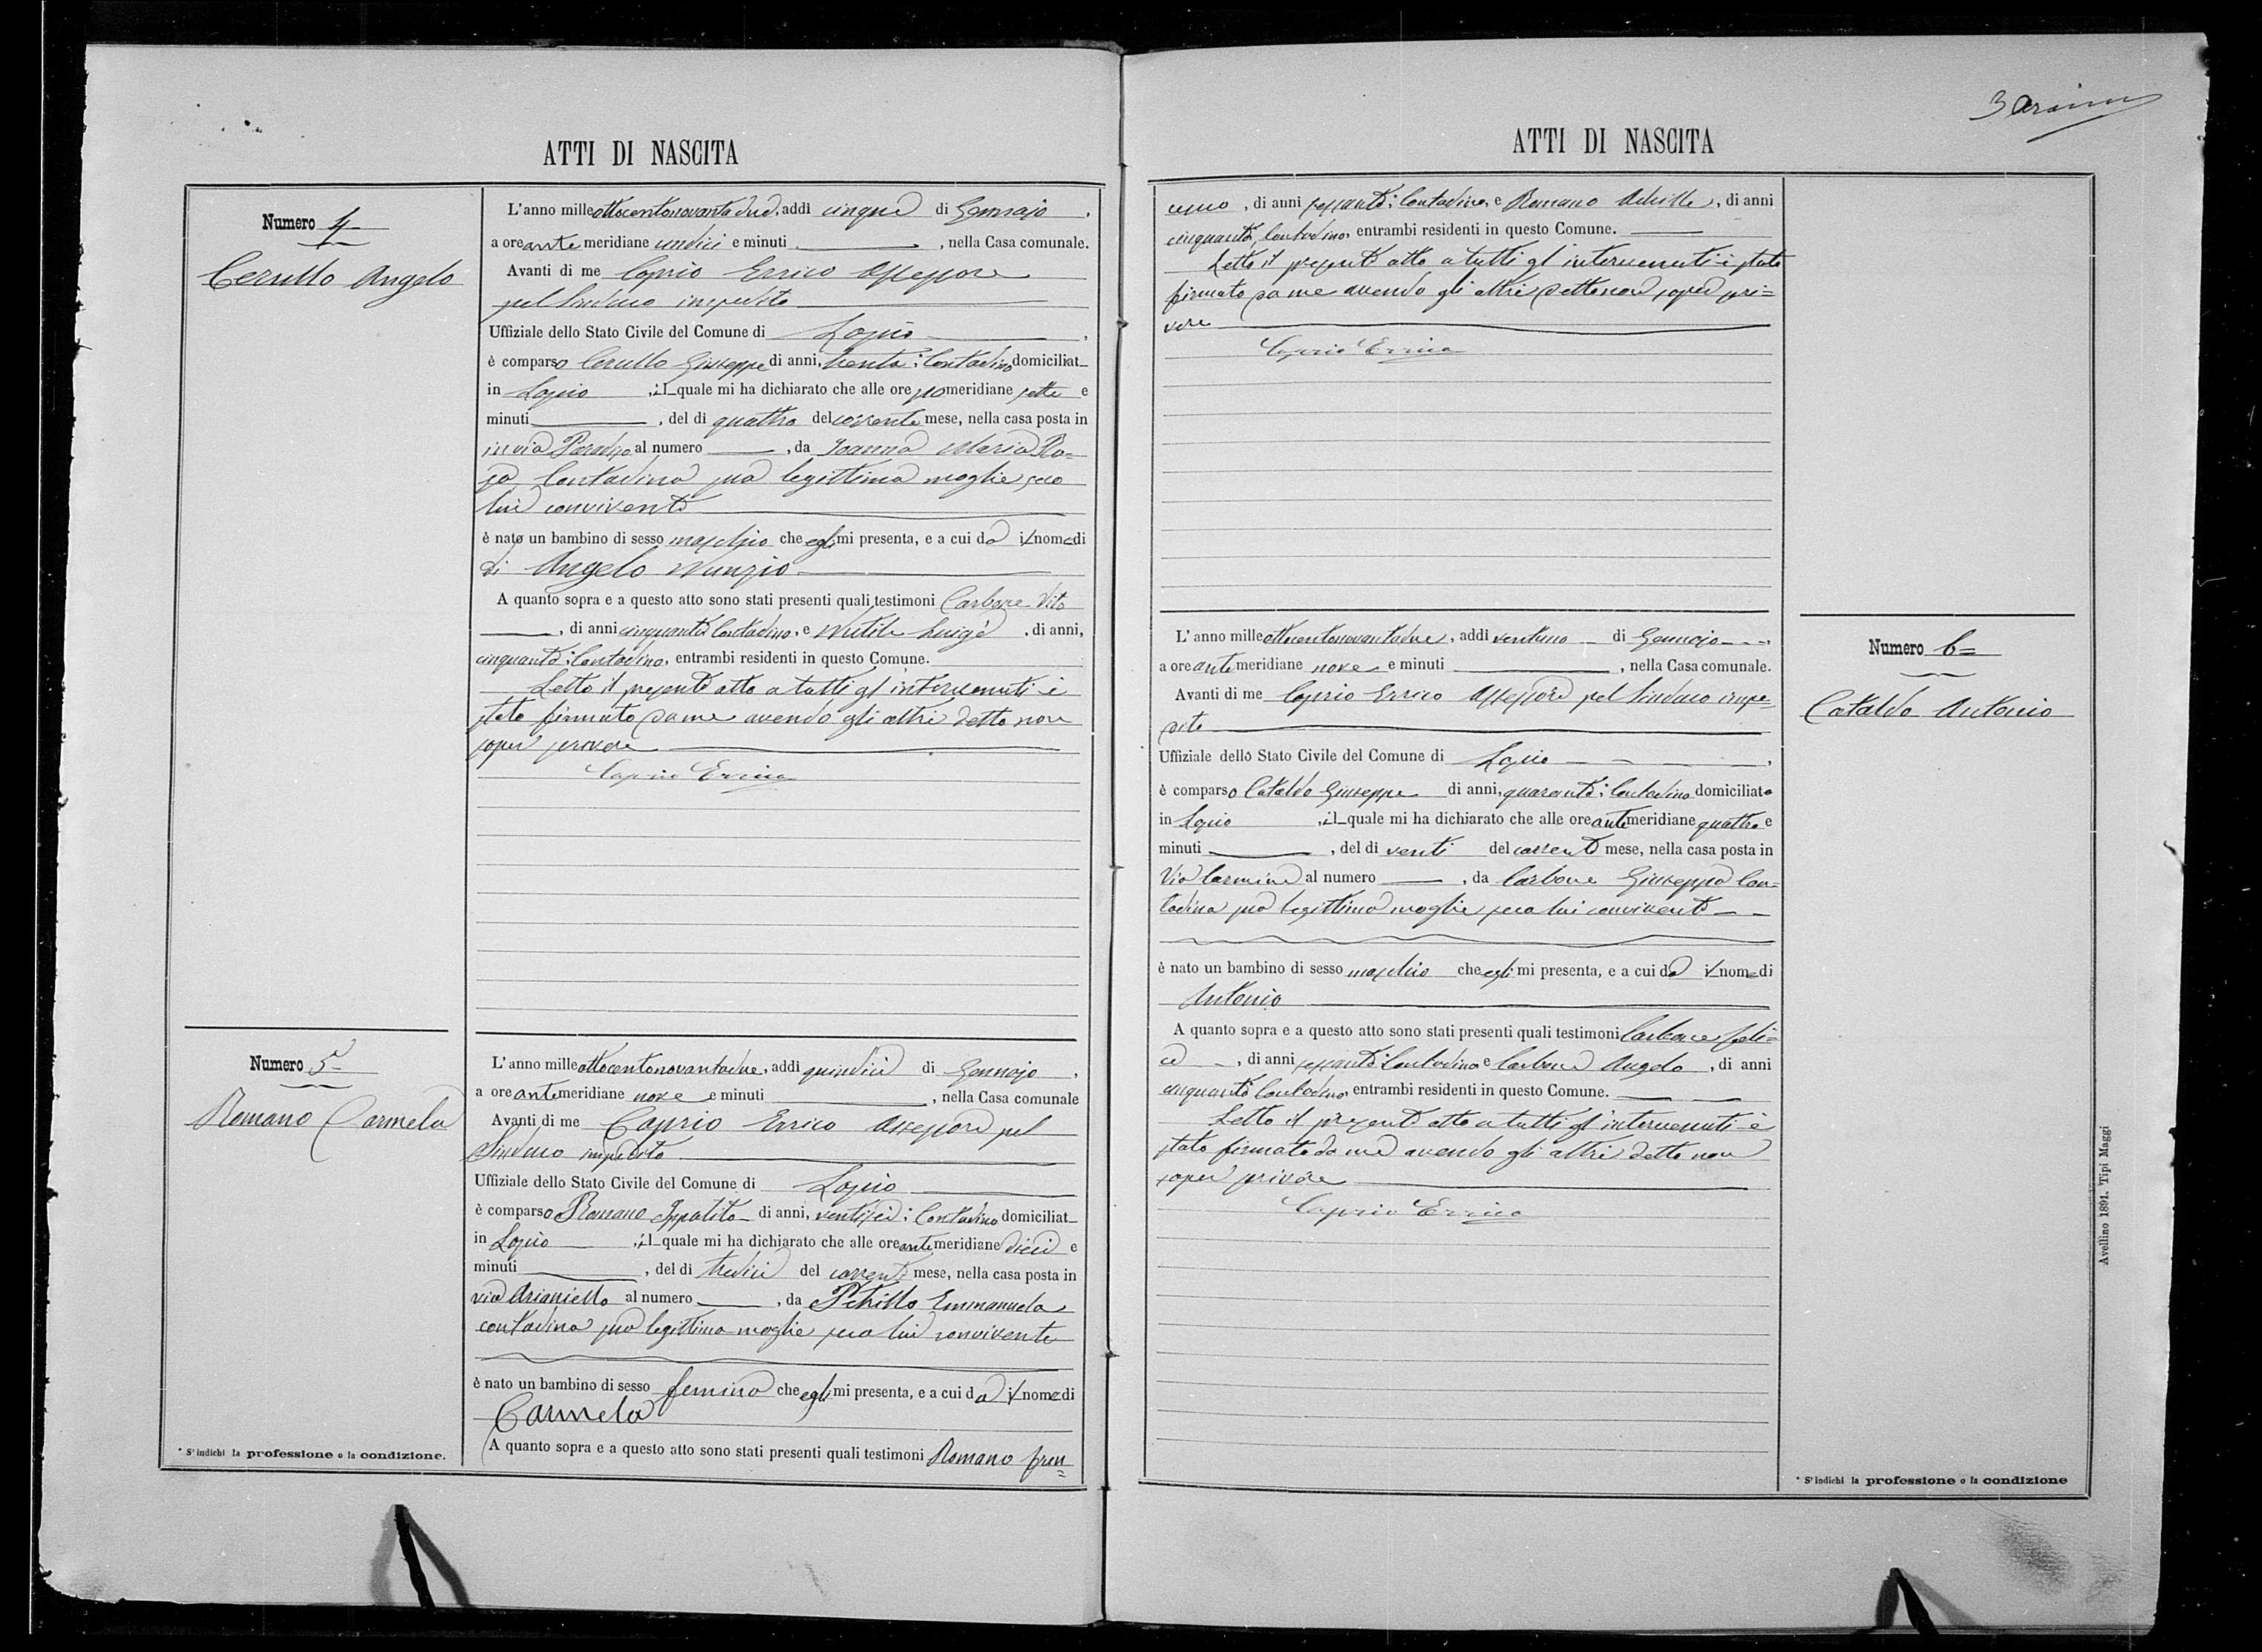 ATTI DI NASCITA
Numero 4
Cerullo Angelo
L'anno milleottocentonovantadue, addi cinque di Gennajo,
a ore ante meridiane undici e minuti ———, nella Casa comunale.
Avanti di me Caprio Errico Assessore
pel Sindaco impedito
Uffiziale dello Stato Civile del Comune di Lapio,
è comparso Cerullo Giuseppe di anni, trenta; Contadino domiciliat_
in Lapio, il quale mi ha dichiarato che alle ore pomeridiane sette e
minuti ———, del di quattro del corrente mese, nella casa posta in
in via Paradiso al numero ———, da Joanna Maria Ro=
sa Contadina sua legittima moglie seco
lui convivente
è nato un bambino di sesso maschio che egli mi presenta, e a cui da il nome di
di Angelo Nunzio
A quanto sopra e a questo atto sono stati presenti quali testimoni Carbone Vito
———, di anni cinquanta Contadino, e Nutile Luigi, di anni,
cinquanta; Contadino, entrambi residenti in questo Comune.
Letto il presente atto a tutti gl'intervenuti è
stato firmato da me avendo gli altri detto non
saper scrivere
Caprio Errico
Numero 5
Romano Carmela
L'anno milleottocentonovantadue, addi quindici di Gennajo,
a ore antemeridiane nove e minuti ———, nella Casa comunale
Avanti di me Caprio Errico Assessore pel
Sindaco impedito
Uffiziale dello Stato Civile del Comune di Lapio
è comparso Romano Ippolito di anni, ventisei; Contadino domiciliat_
in Lapio, il quale mi ha dichiarato che alle ore antemeridiane dieci e
minuti ———, del di tredici del corrente mese, nella casa posta in
via Arianiello al numero ———, da Petrillo Emmanuela
contadina sua legittima moglie seco lui convivente
è nato un bambino di sesso femina che egli mi presenta, e a cui da il nome di
Carmela
A quanto sopra e a questo atto sono stati presenti quali testimoni Romano fran=
* S'indichi la professione o la condizione.
3
ATTI DI NASCITA
cesco, di anni sessanta; Contadino, e Romano Achille, di anni
cinquanta, Contadino, entrambi residenti in questo Comune.
Letto il presente atto a tutti gl'intervenuti è stato
firmato da me avendo gli altri detto non saper scri=
vere
Caprio Errico
L'anno milleottocentonovantadue, addi ventuno di Gennajo,
a ore antemeridiane nove e minuti ———, nella Casa comunale.
Avanti di me Caprio Errico Assessore pel Sindaco impe=
dito
Uffiziale dello Stato Civile del Comune di Lapio,
è comparso Cataldo Giuseppe di anni, quaranta; Contadino domiciliato
in Lapio, il quale mi ha dichiarato che alle ore antemeridiane quattro e
minuti ———, del di venti del corrente mese, nella casa posta in
Via Carmine al numero ———, da Carbone Giuseppa Con=
tadina sua legittima moglie seco lui convivente
è nato un bambino di sesso maschio che egli mi presenta, e a cui da il nome di
Antonio
A quanto sopra e a questo atto sono stati presenti quali testimoni Carbone feli=
ce, di anni sessanta Contadino e Carbone Angelo, di anni
cinquanta Contadino, entrambi residenti in questo Comune.
Letto il presente atto a tutti gl'intervenuti è
stato firmato da me avendo gli altri detto non
saper scrivere
Caprio Errico
Numero 6=
Cataldo Antonio
* S'indichi la professione o la condizione
Avellino 1891. Tipi Maggi